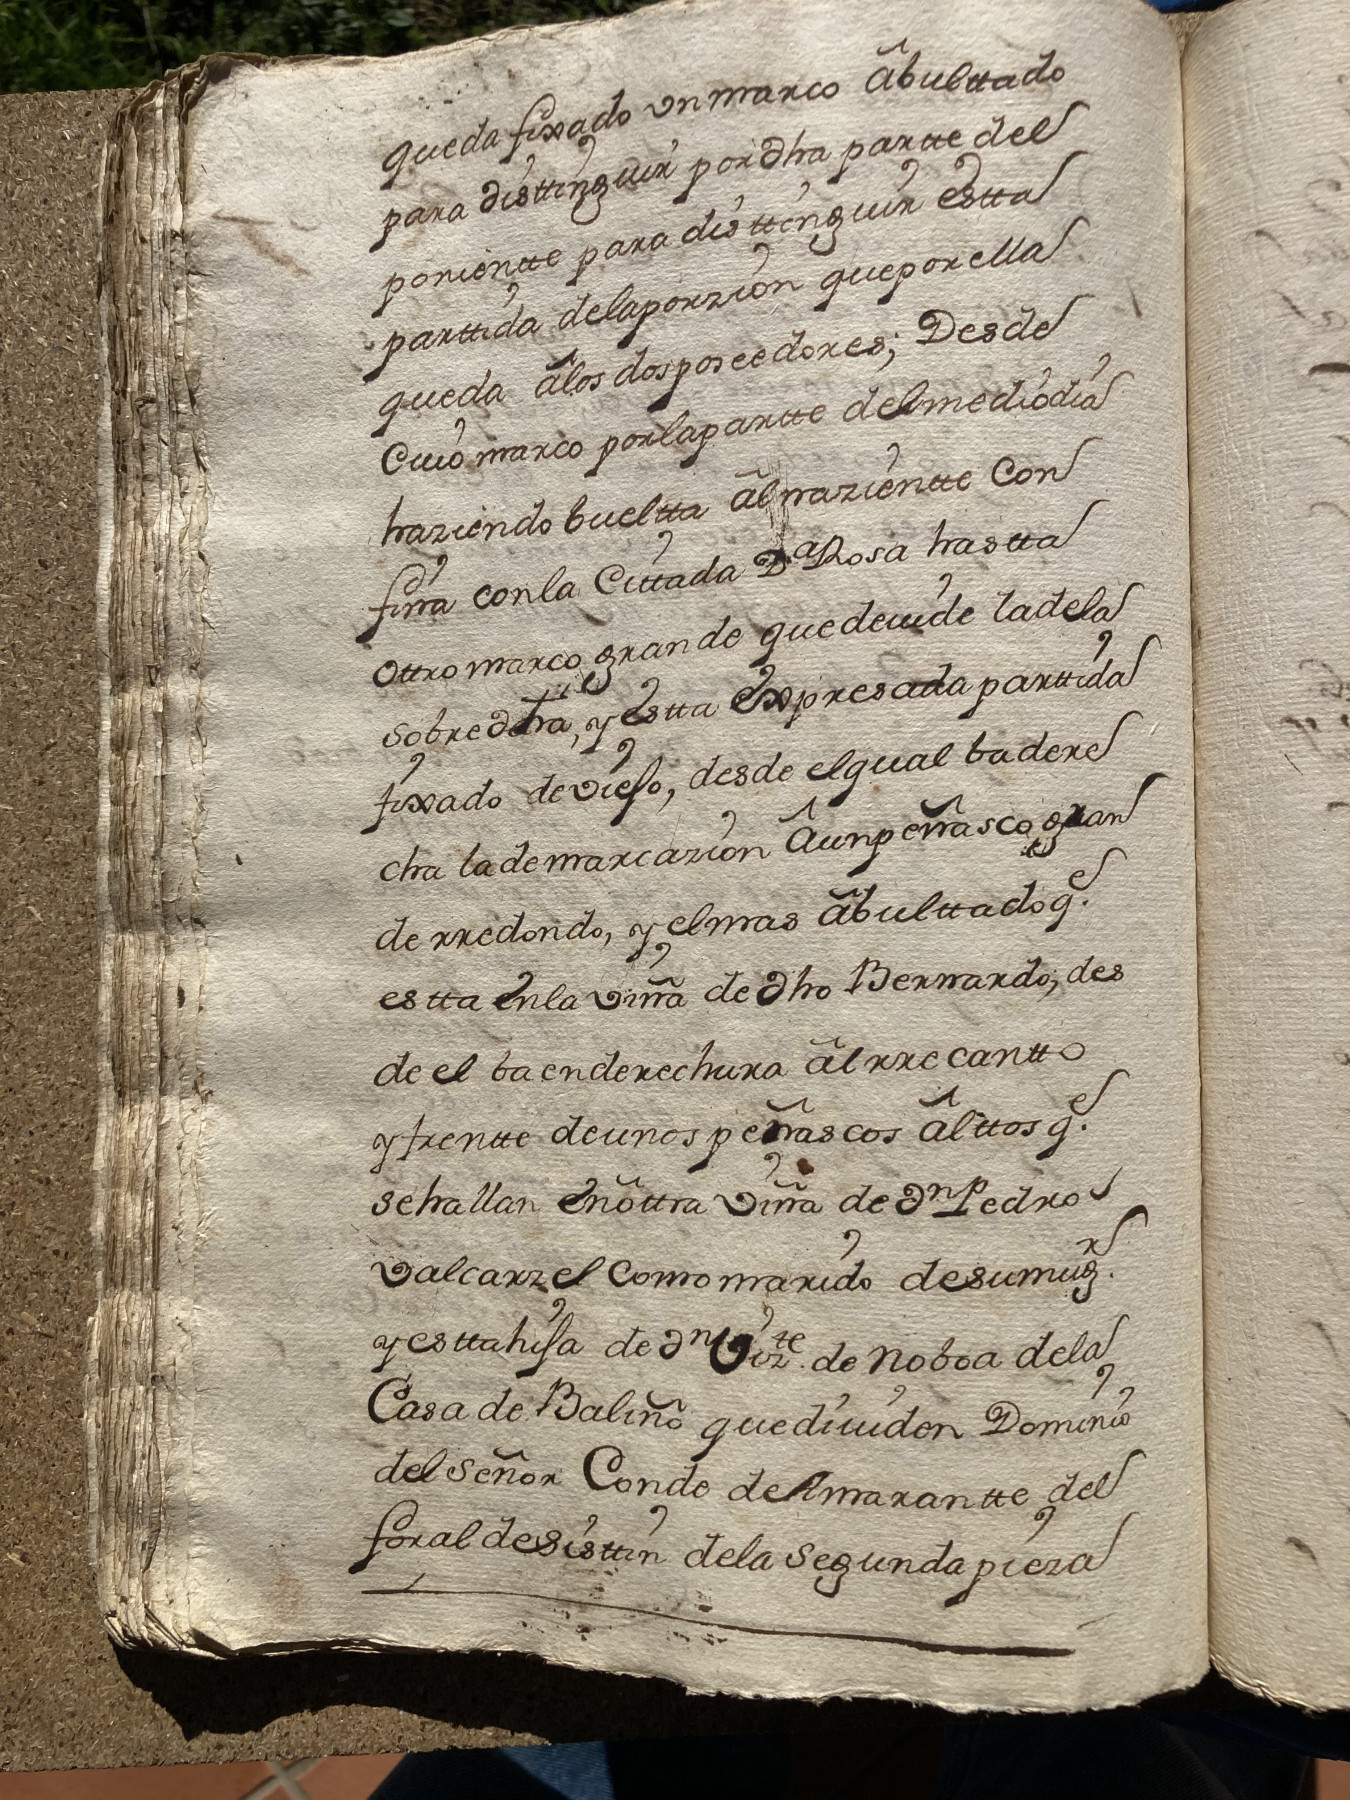 queda fixado vn marco âbulttado
para disttinguir por dha partte del
ponientte para disttinguir estta
parttida de la porzion que por ella
queda â los dos poseedores; Desde
Cuio marco por la partte del mediodia
haziendo bueltta âl nazientte Con
fina con la Cittada Da Rosa hastta
ottro marco grande que deuide la de la
sobre dha, y estta expresada parttida
fixado de viejo, desde el qual ba dere
cha la demarcazion â un peñasco gran
de rredondo, y el mas âbulttado qe.
estta en la viña de dho Bernardo, des
de el ba en derechura âl rrecantto
y frentte de unos peñascos âlttos qe.
se hallan en ôttra viña de dn Pedro
Valcarzel como marido de su mugr.
y estta hija de dn Vizte. de Noboa de la
Casa de Baliño que diuiden Dominio
del Señor Conde de Amarantte del
foral de Sisttin de la segunda pieza